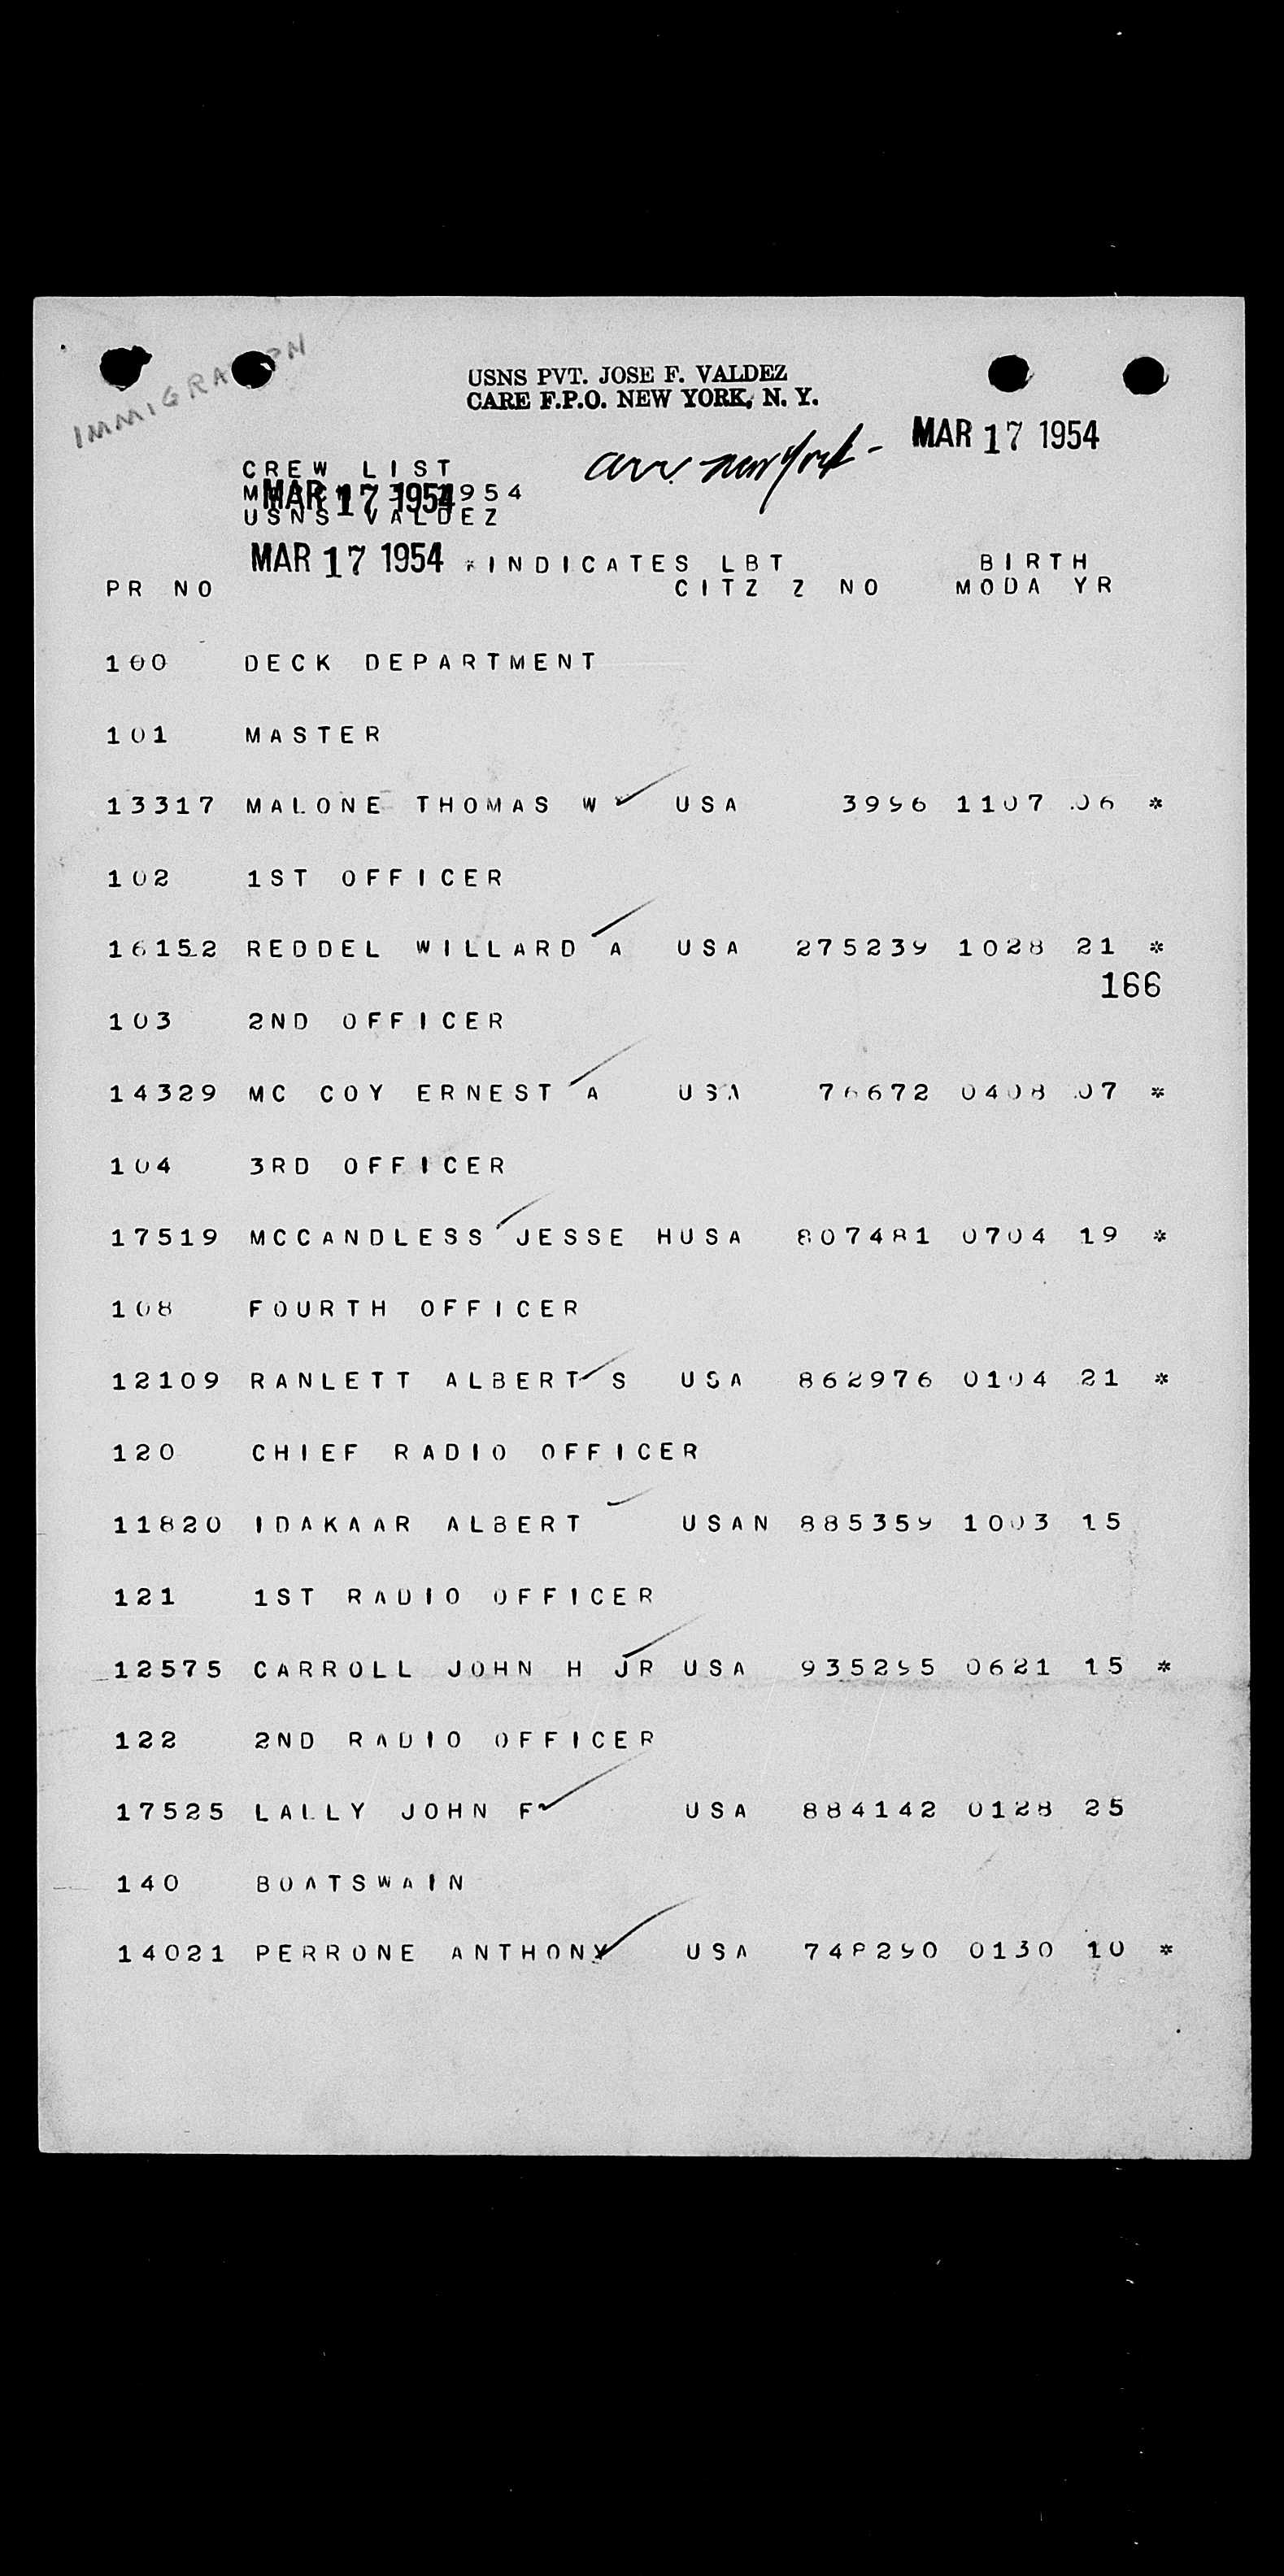 IMMIGRATION
USNS PVT. JOSE F. VALDEZ
CARE F.P.O. NEW YORK, N. Y.
MAR 17 1954
arr. New York -
CREW LIST
MAR 17 1954 1954
USNS VALDEZ
MAR 17 1954 *INDICATES LBT BIRTH
PR NO CITZ Z NO MODA YR
100 DECK DEPARTMENT
101 MASTER
13317 MALONE THOMAS W USA 3996 1107 06 *
102 1ST OFFICER
16152 REDDEL WILLARD A USA 275239 1028 21 *
166
103 2ND OFFICER
14329 MC COY ERNEST A USA 76672 0408 07 *
104 3RD OFFICER
17519 MCCANDLESS JESSE HUSA 807481 0704 19 *
108 FOURTH OFFICER
12109 RANLETT ALBERT S USA 862976 0104 21 *
120 CHIEF RADIO OFFICER
11820 IDAKAAR ALBERT USAN 885359 1003 15
121 1ST RADIO OFFICER
12575 CARROLL JOHN H JR USA 935295 0621 15 *
122 2ND RADIO OFFICER
17525 LALLY JOHN F USA 884142 0128 25
140 BOATSWAIN
14021 PERRONE ANTHONY USA 748290 0130 10 *